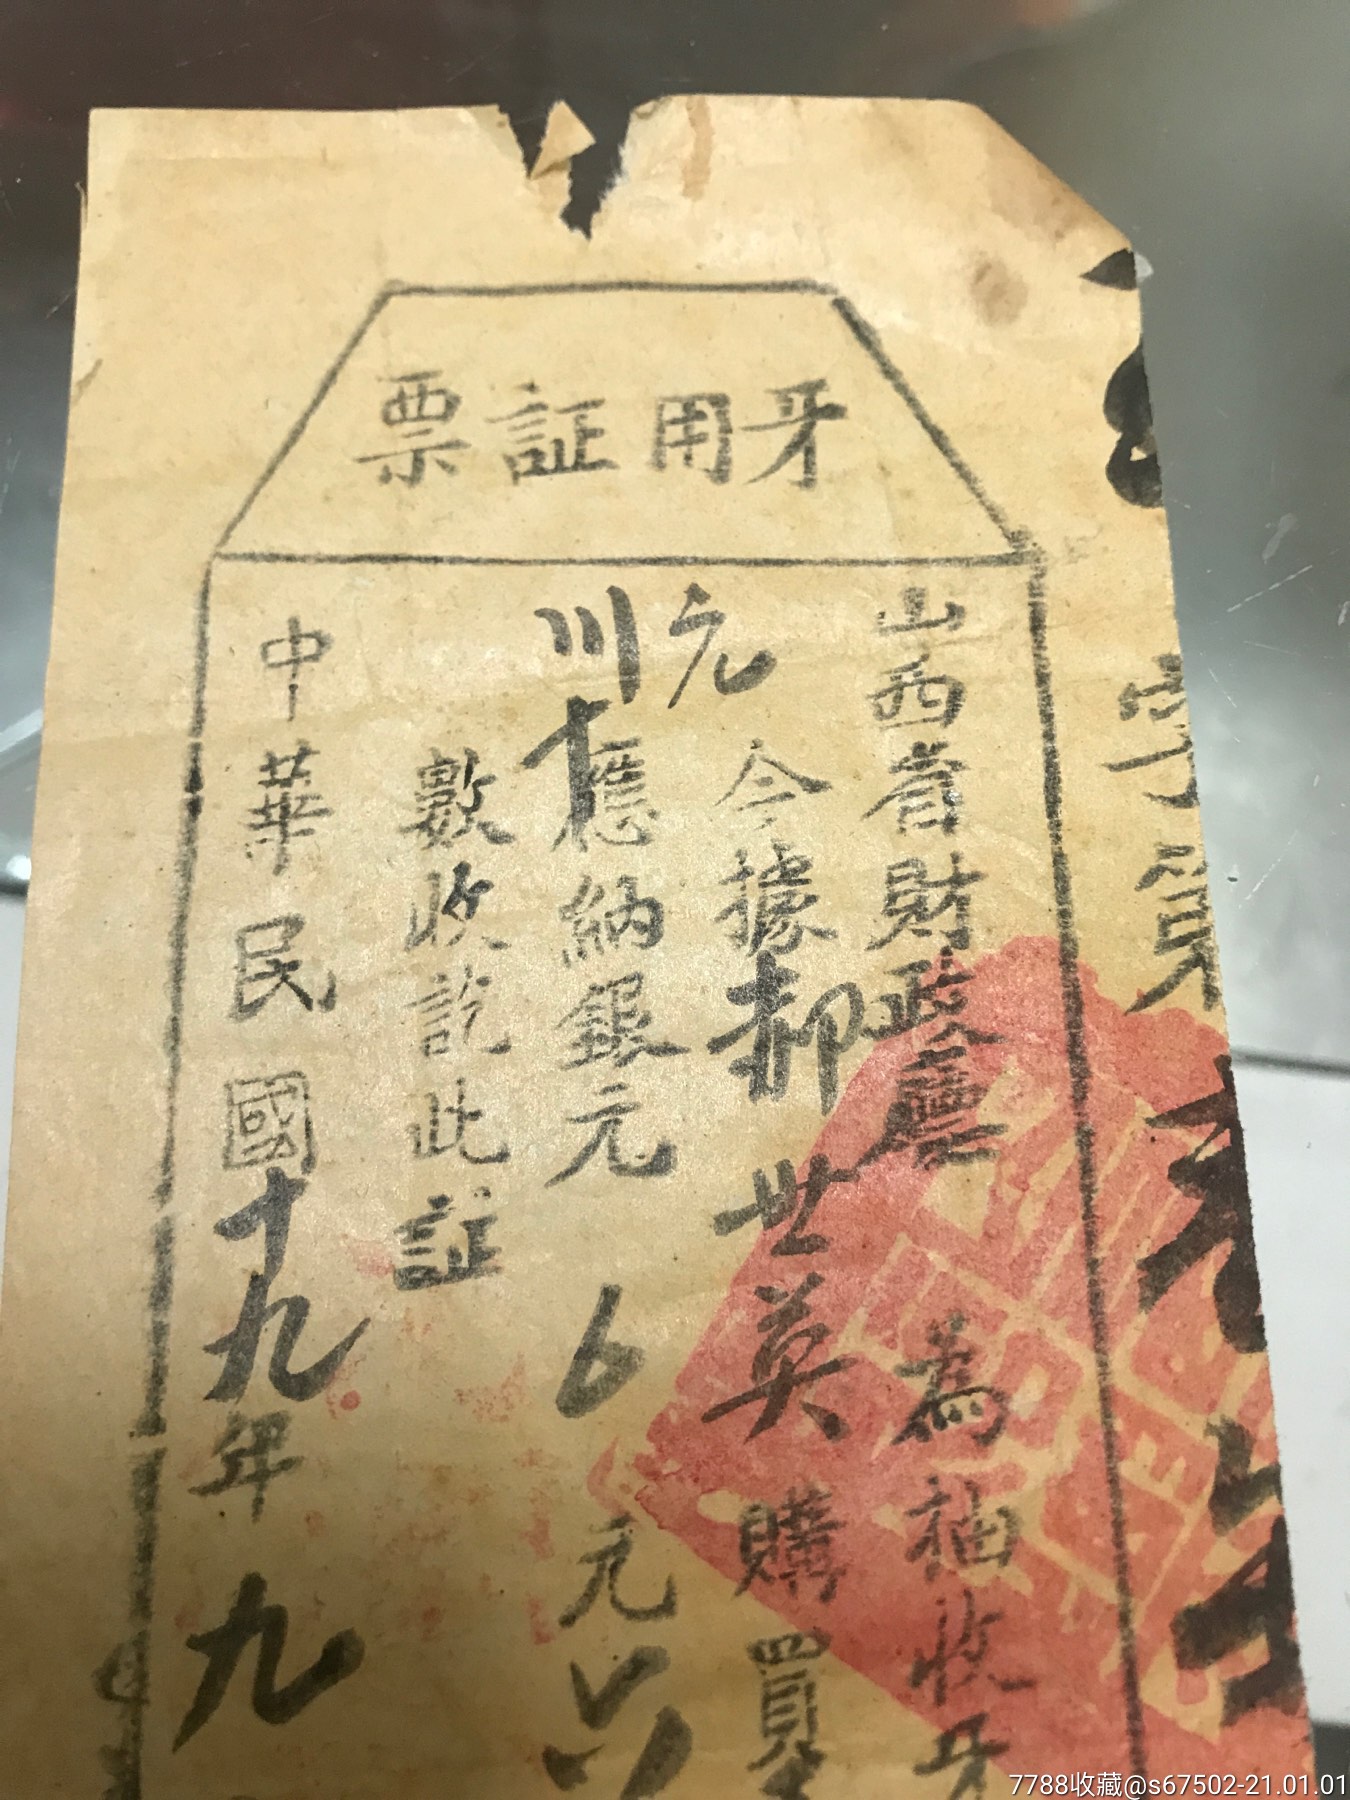 牙用証票
字第
山西省財政廳 為抽收牙
今據郝世英 購買
元
川十
應納銀元 6 元
數收訖此証
中華民國十九年九
7788收藏@s67502-21.01.01